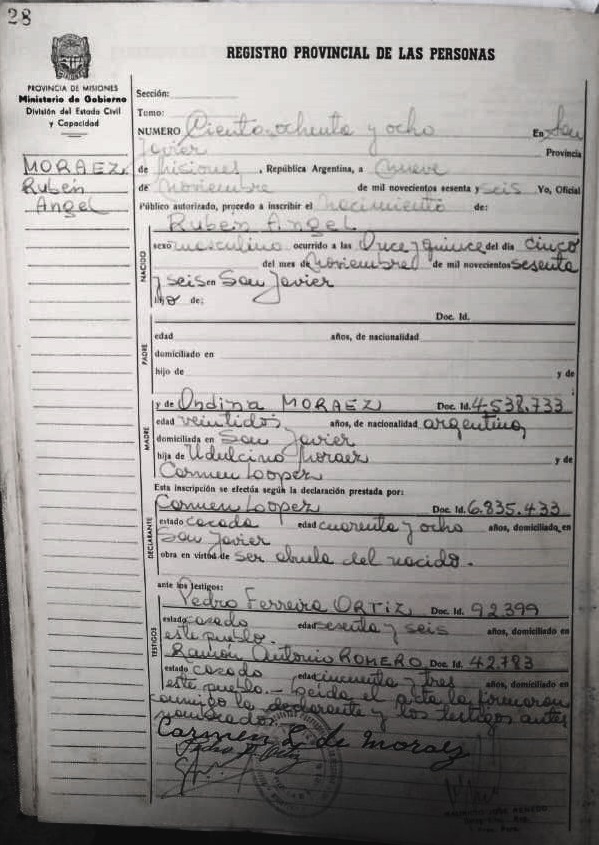 28
REGISTRO PROVINCIAL DE LAS PERSONAS
PROVINCIA DE MISIONES
Ministerio de Gobierno
División del Estado Civil
y Capacidad
MORAEZ
Rubén
Angel
Sección:
Tomo:
NUMERO Ciento ochenta y ocho En San
Javier Provincia
de Misiones, República Argentina, a nueve
de noviembre de mil novecientos sesenta y seis Yo, Oficial
Público autorizado, procedo a inscribir el nacimiento de:
NACIDO
Ruben Angel
sexo masculino ocurrido a las Once y quince del día cinco
del mes de Noviembre de mil novecientos sesenta
y seis en San Javier
hijo de:
PADRE
Doc. Id.
edad años, de nacionalidad
domiciliado en
hijo de y de
MADRE
y de Ondina MORAEZ Doc. Id. 4.538.733
edad veintidos años, de nacionalidad argentina
domiciliada en San Javier
hija de Udulcino Moraez y de
Carmen Loopez
Esta inscripción se efectúa según la declaración prestada por:
DECLARANTE
Carmen Loopez Doc. Id. 6.835.433
estado casada edad cuarenta y ocho años, domiciliado en
San Javier
obra en virtud de ser abula del nacido.
ante los testigos:
TESTIGOS
Pedro Ferreira ORTIZ Doc. Id. 92399
estado casado edad sesenta y seis años, domiciliado en
este pueblo.
Ramón Antonio ROMERO Doc. Id. 42.783
estado casado edad cincuenta y tres años, domiciliado en
este pueblo.- Leida el acta la firmaron
conmigo la declarante y los testigos antes
nombrados
Carmen L. de Moraez